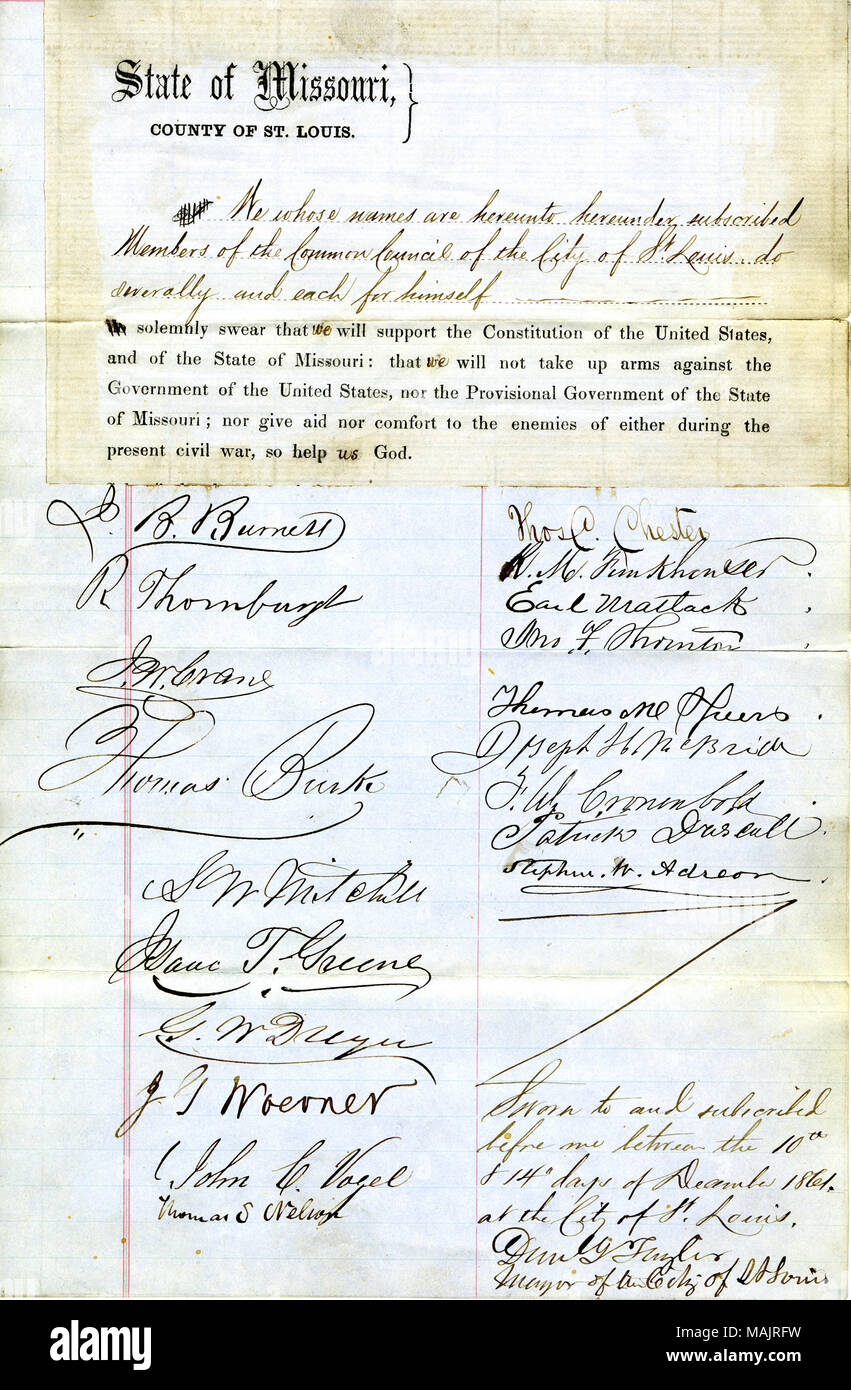 State of Missouri,
COUNTY OF ST. LOUIS.
We whose names are hereunto hereunder subscribed
Members of the Common Council of the City of St. Louis. do
severally and each for himself
solemnly swear that we will support the Constitution of the United States,
and of the State of Missouri: that we will not take up arms against the
Government of the United States, nor the Provisional Government of the State
of Missouri; nor give aid nor comfort to the enemies of either during the
present civil war, so help us God.
B. Burnett
R Thornburgh
J. W. Crane
Thomas Burke
S W Mitchell
Isaac T. Greene
G. W Dreyer
J G Woerner
John C. Vogel
Thomas S Nelson
Thos. C. Chester
R. M. Funkhouser
Earl Matlack
Jno F. Thornton
Thomas Mc
Joseph H McBride
F. W. Cronenbold
Patrick Driscoll
Stephen. W. Adreon
Sworn to and subscribed
before me between the 10th
& 14" days of December 1861.
at the City of St. Louis.
Danl G Taylor
Mayor of the City of St Louis
alamy
Image ID: MAJRFW
www.alamy.com